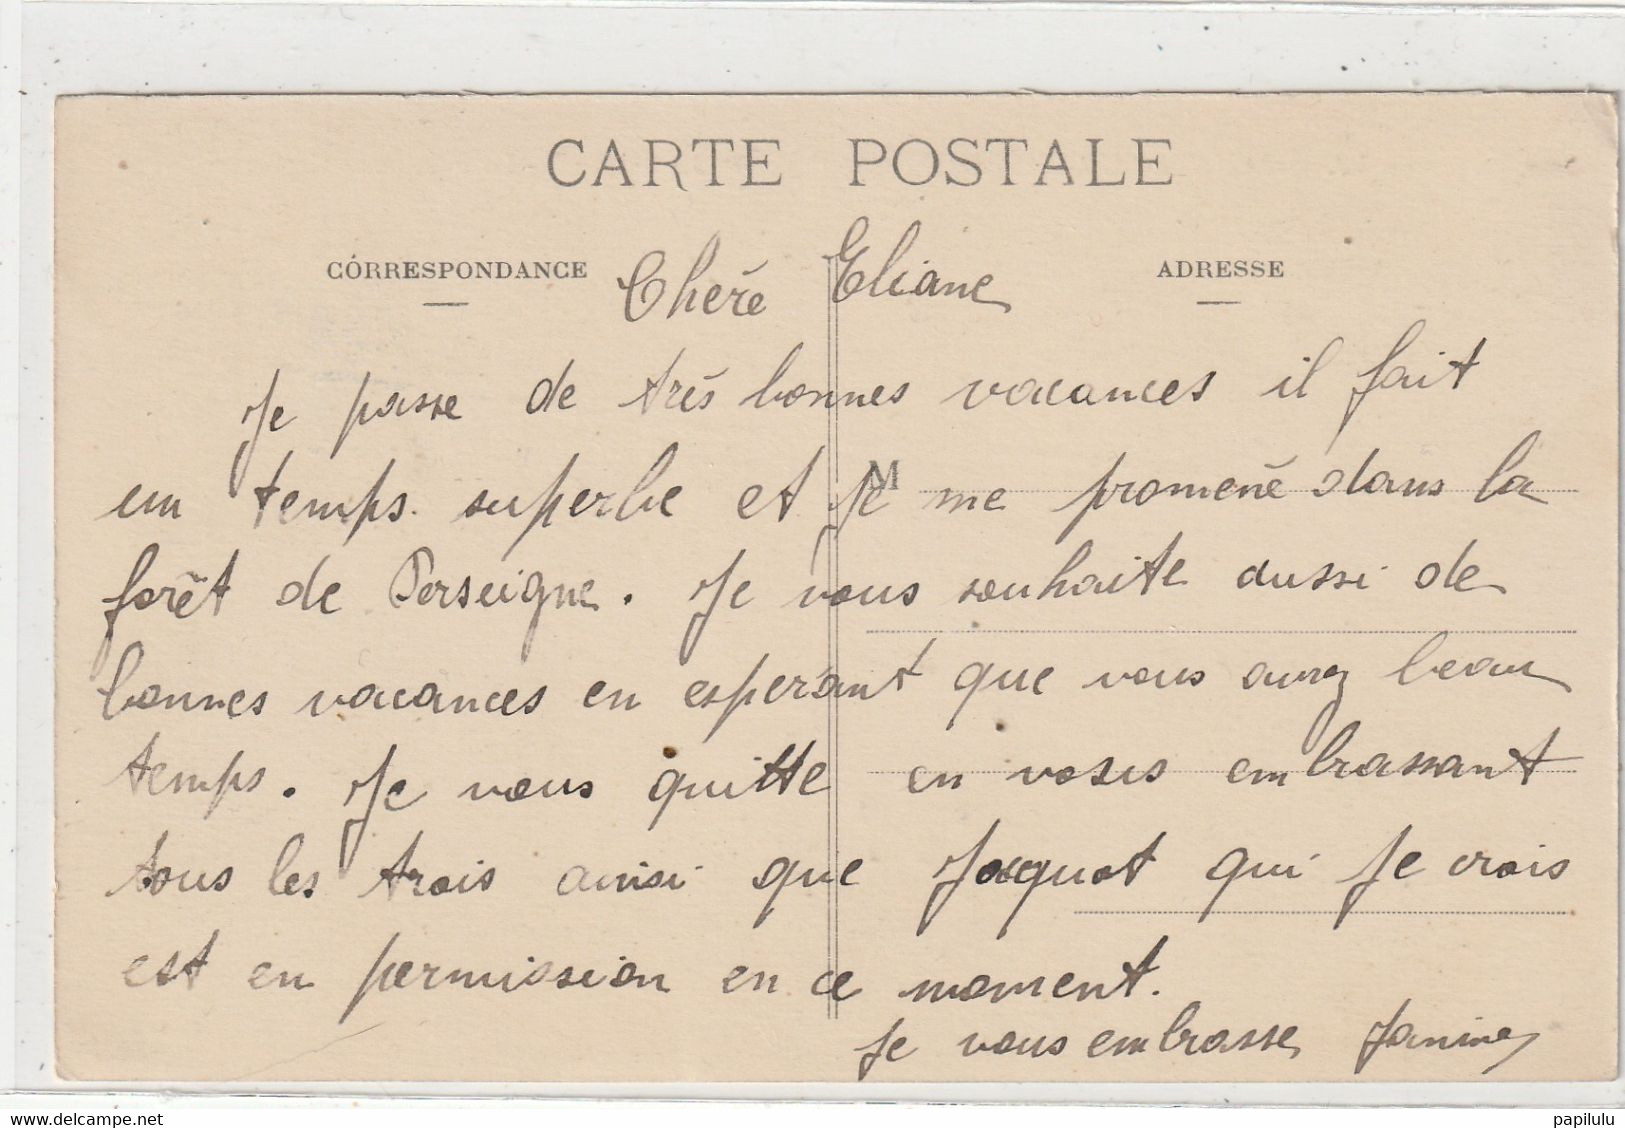 CARTE POSTALE
CORRESPONDANCE
ADRESSE
Chère Eliane
Je passe de très bonnes vacances il fait
un temps. superbe et je me promenè dans la
M
forêt de Perseigne. Je vous souhaite aussi de
bonnes vacances en espérant que vous aurez beau
temps. Je vous quitte en vosus embrassant
tous les trois ainsi que Jacquot qui je crois
est en permission en ce moment.
Je vous embrasse Janine
© www.delcampe.net
papilulu